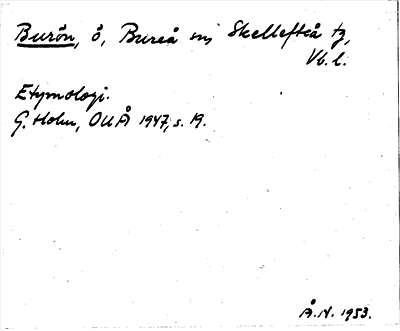 Burön, ö, Bureå sn, Skellefteå tg,
Vb. l.
Etymologi.
G. Holm, OUÅ 1947, s. 19.
Å. N. 1953.